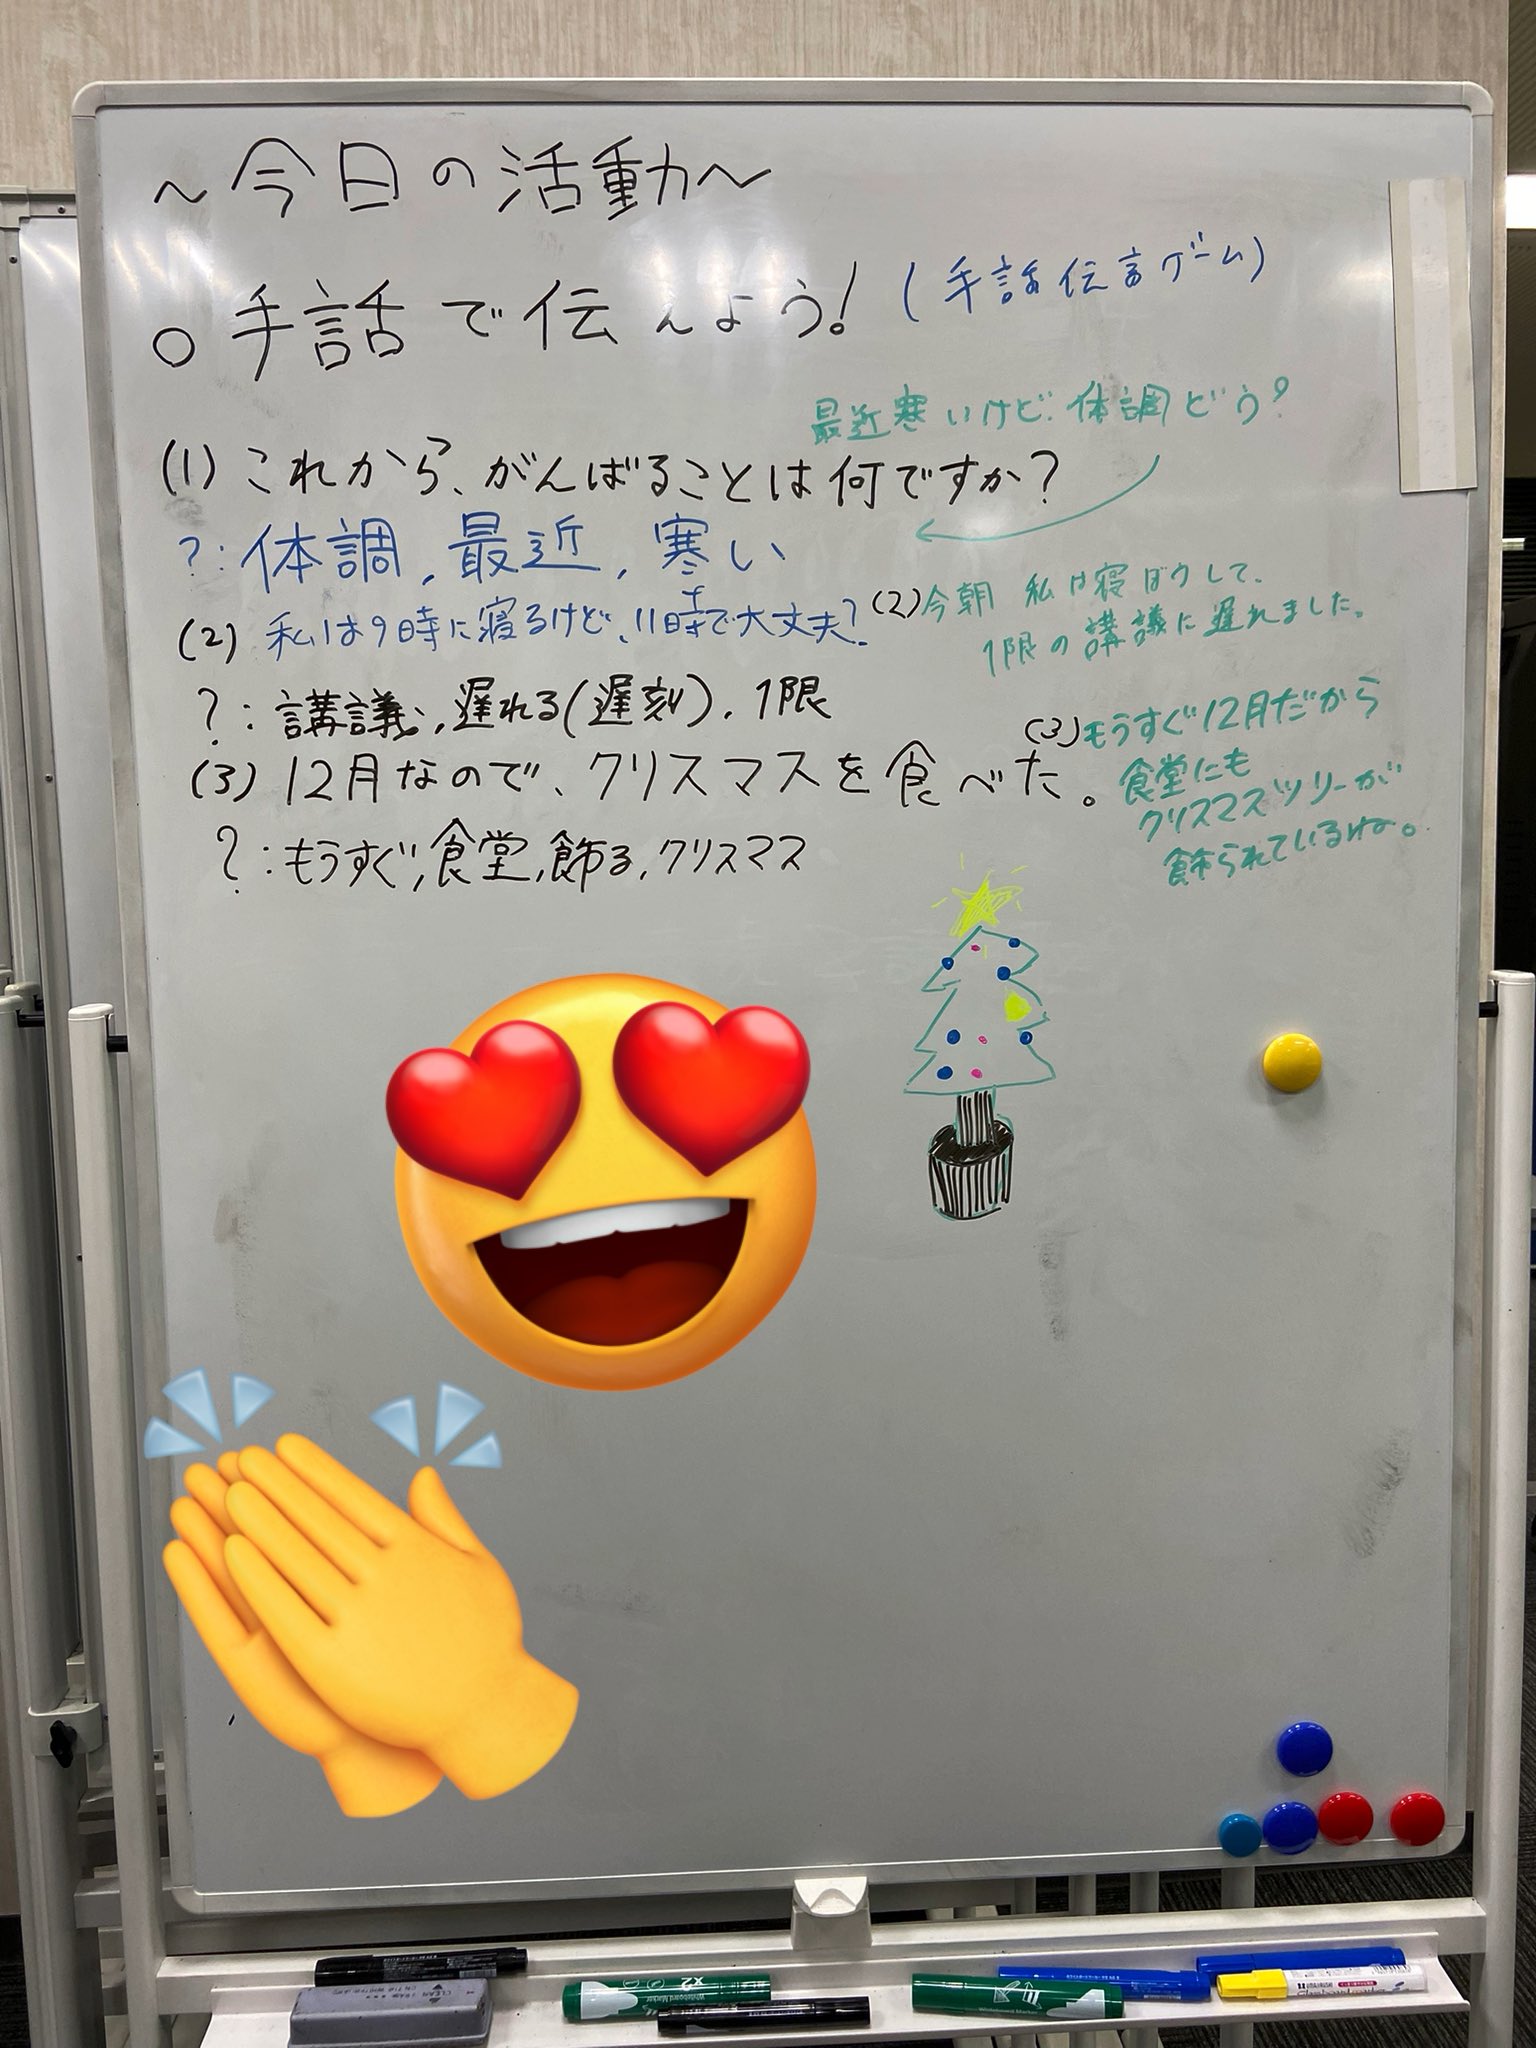 ～今日の活動～
○手話で伝えよう!（手話伝言ゲーム）
最近寒いけど体調どう?
(1)これから、がんばることは何ですか?
?:体調,最近,寒い
(2)私は9時に寝るけど、11時で大丈夫?
(2)今朝 私は寝ぼうして、
1限の講議に遅れました。
?:講議,遅れる(遅刻),1限
(3)もうすぐ12月だから
食堂にも
クリスマスツリーが
飾られているね。
(3)12月なので、クリスマスを食べた。
?:もうすぐ,食堂,飾る,クリスマス
X2
Whiteboard Marker
CLEAN